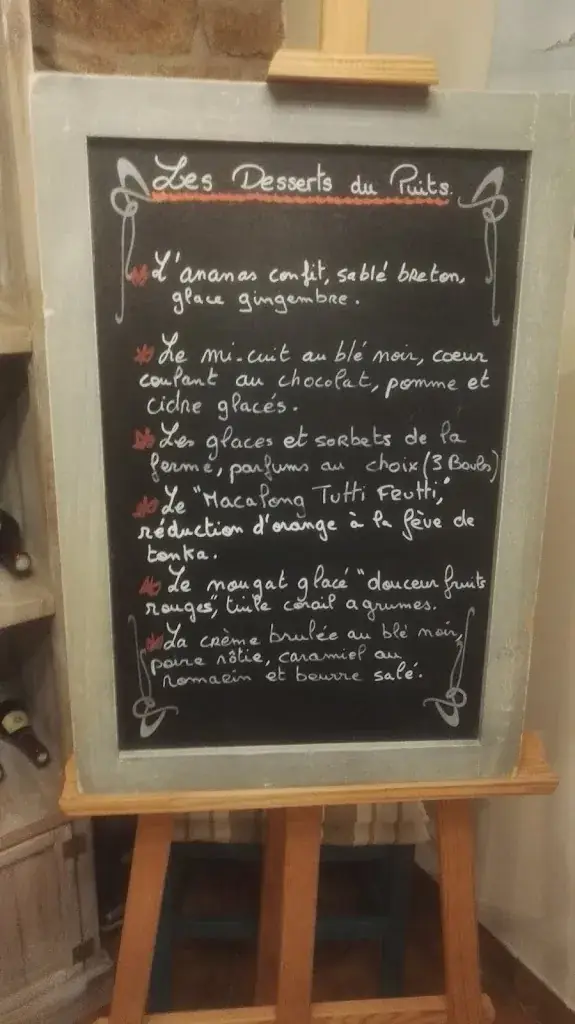 Les Desserts du Puits.
L'ananas confit, sablé breton,
glace gingembre.
Le mi-cuit au blé noir, coeur
coulant au chocolat, pomme et
cidre glacés.
Les glaces et sorbets de la
ferme, parfums au choix (3 Boules)
Le "Macalong Tutti Frutti,"
réduction d'orange à la fève de
tonka.
Le nougat glacé "douceur fruits
rouges", tuile corail agrumes.
La crème brulée au blé noir,
poire rôtie, caramiel au
romarin et beurre salé.